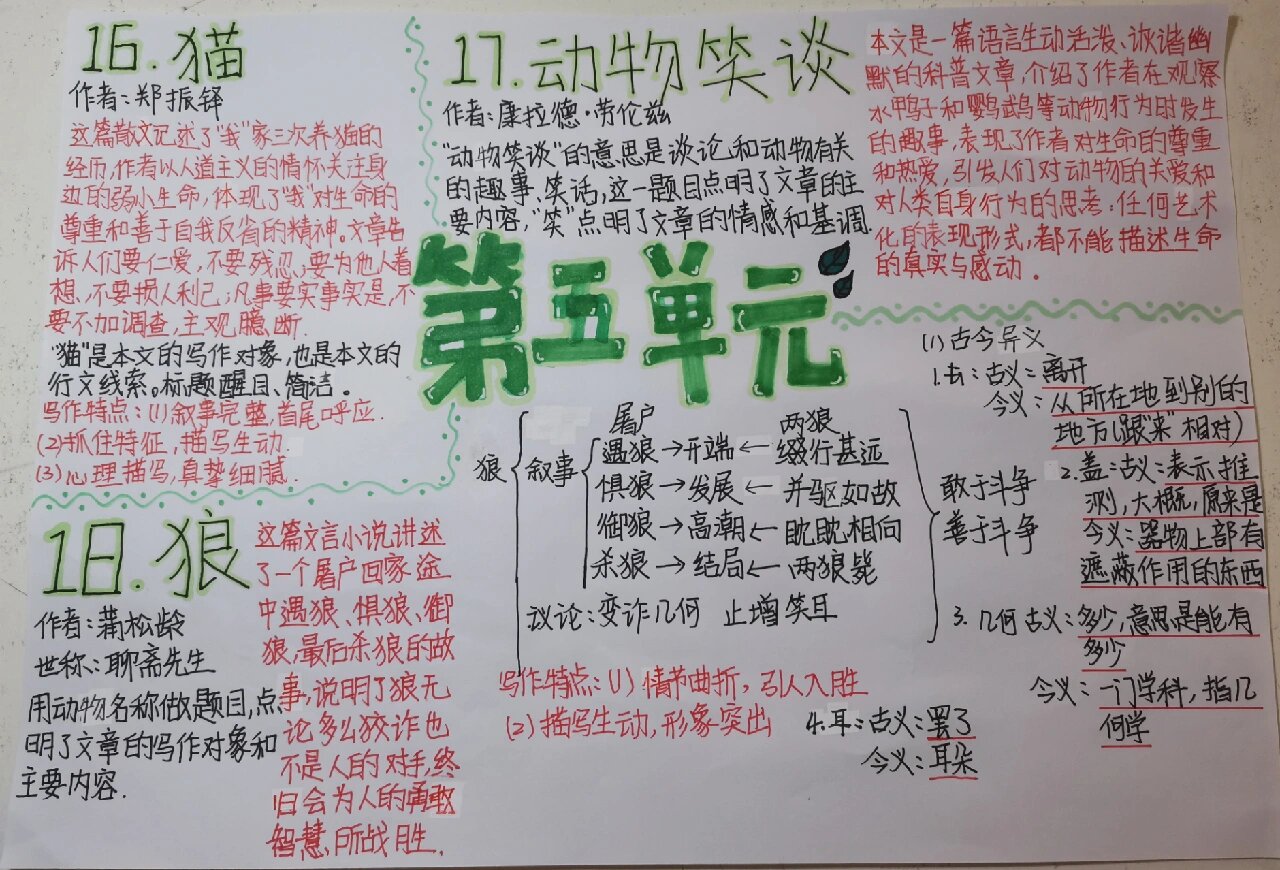 16.猫
作者:郑振铎
这篇散文记述了“我”家三次养猫的
经历,作者以人道主义的情怀关注身
边的弱小生命,体现了“我”对生命的
尊重和善于自我反省的精神。文章告
诉人们要仁爱,不要残忍,要为他人着
想、不要损人利己,凡事要实事实是,不
要不加调查,主观臆断.
“猫”是本文的写作对象,也是本文的
行文线索。标题醒目、简洁。
写作特点:(1)叙事完整,首尾呼应.
(2)抓住特征,描写生动.
(3)心理描写,真挚细腻.
17.动物笑谈
作者:康拉德·劳伦兹
“动物笑谈”的意思是谈论和动物有关
的趣事、笑话,这一题目点明了文章的主
要内容,“笑”点明了文章的情感和基调.
本文是一篇语言生动活泼、诙谐幽
默的科普文章,介绍了作者在观察
水鸭子和鹦鹉等动物行为时发生
的趣事,表现了作者对生命的尊重
和热爱,引发人们对动物的关爱和
对人类自身行为的思考.任何艺术
化的表现形式,都不能描述生命
的真实与感动。
第五单元
18.狼
作者:蒲松龄
世称:聊斋先生
用动物名称做题目,点
明了文章的写作对象和
主要内容.
这篇文言小说讲述
了一个屠户回家途
中遇狼、惧狼、御
狼,最后杀狼的故
事,说明了狼无
论多么狡诈也
不是人的对手,终
归会为人的勇敢
智慧,所战胜.
屠户 两狼
狼 叙事 遇狼→开端←缀行甚远
惧狼→发展←并驱如故
御狼→高潮←眈眈相向
杀狼→结局←两狼毙
议论:变诈几何 止增笑耳
敢于斗争
善于斗争
写作特点:(1)情节曲折,引人入胜
(2)描写生动,形象突出
(1)古今异义
1.去:古义:离开
今义:从所在地到别的
地方(跟“来”相对)
2.盖:古义:表示推
测,大概,原来是
今义:器物上部有
遮蔽作用的东西
3.几何古义:多少,意思是能有
多少
今义:一门学科,指几
何学
4.耳:古义:罢了
今义:耳朵